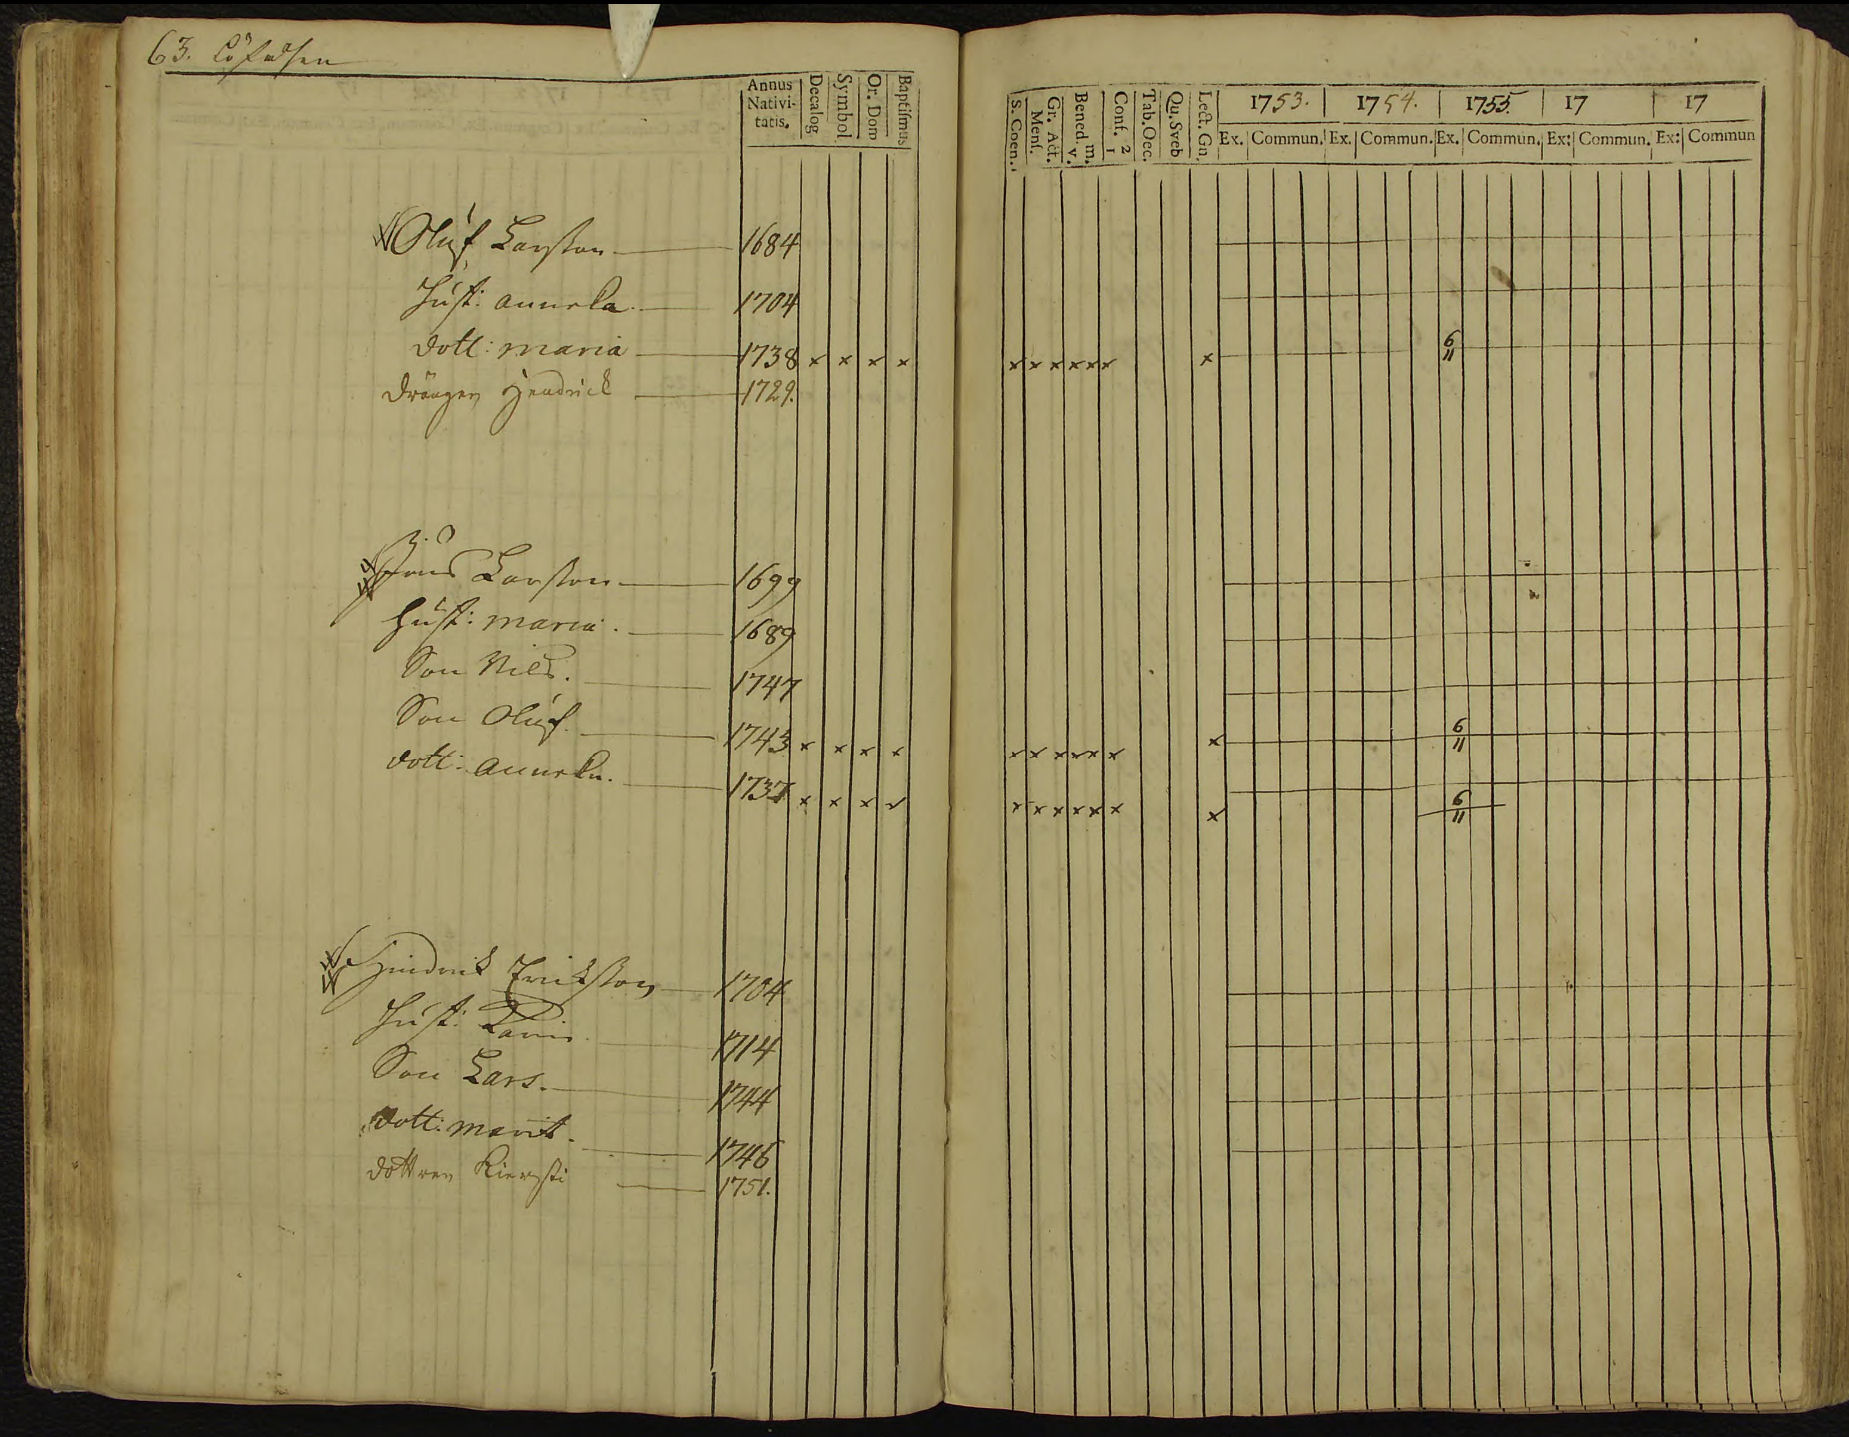 63. Löfåsen
Annus Nativitatis. Decalog. Symbol. Or. Dom Baptismus
S. Coen. Gr. Act. Mens. Bened. m. v. Conf. 2 1 Tab. Oec. Qu. Sveb Lect. Gn. 1753. 1754. 1755. 17 17
Ex. Commun. Ex. Commun. Ex. Commun. Ex: Commun. Ex: Commun
Oluf Larsson 1684
Hust: Annika 1704
dott: Maria 1738 x x x x x x x x x x x 6 11
drängen Hendrick 1729.
Jöns Larsson 1699
Hust: Maria. 1689
Son Nils. 1747
Son Oluf. 1743 x x x x x x x x x x x 6 11
dott: Annika. 1737 x x x x x x x x x x x 6 11
Hindrik Eriksson 1704
Hust: Karin 1714
Son Lars. 1744
dott: Marit. 1746
dottren Kiersti 1751.